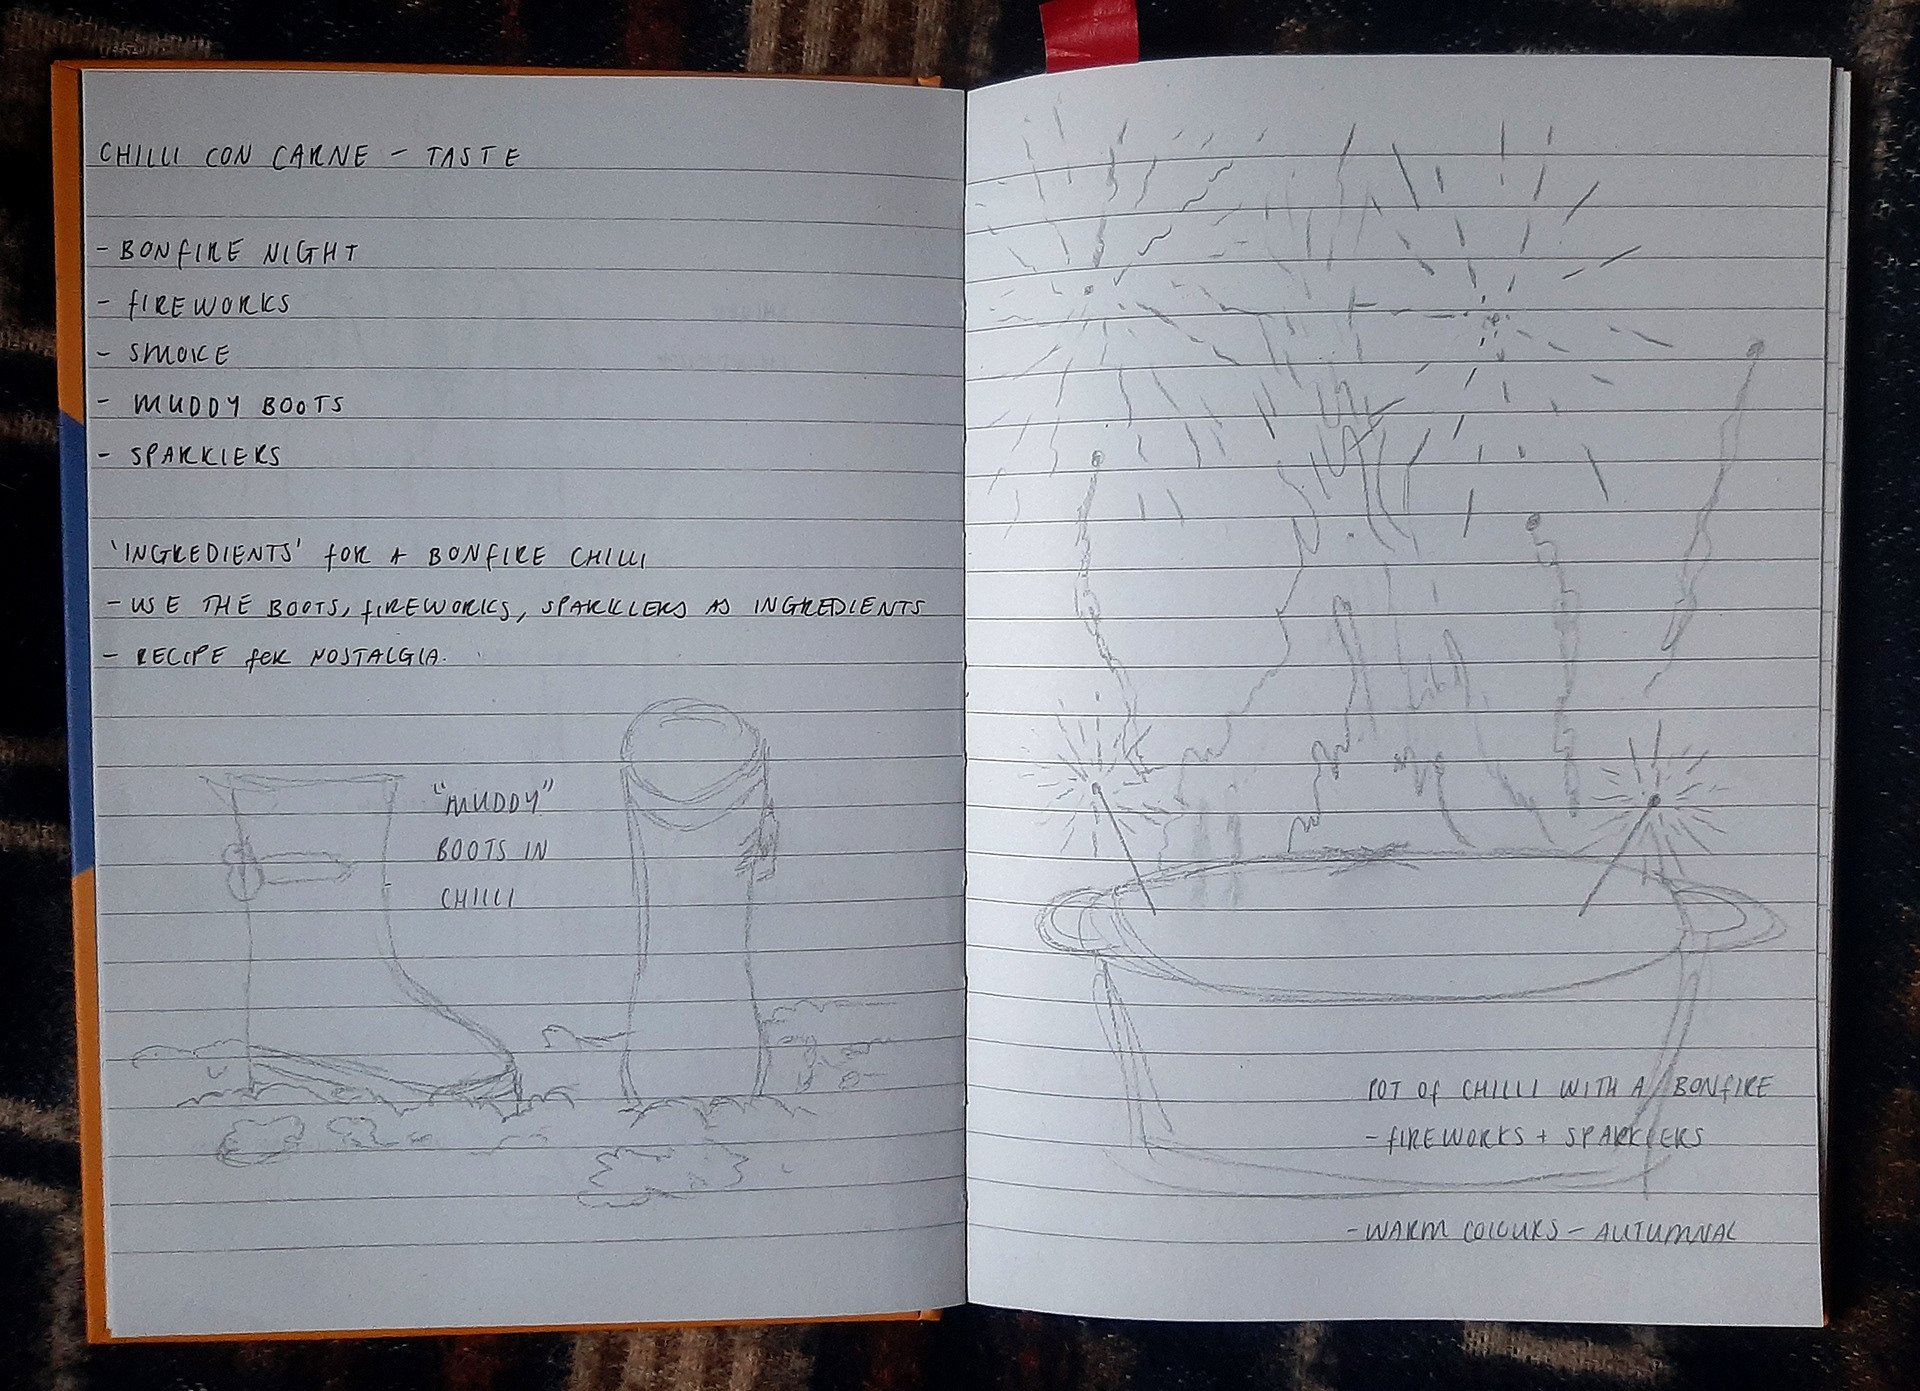 CHILLI CON CARNE - TASTE
- BONFIRE NIGHT
- FIREWORKS
- SMOKE
- MUDDY BOOTS
- SPARKLERS
'INGREDIENTS' FOR A BONFIRE CHILLI
- USE THE BOOTS, FIREWORKS, SPARKLERS AS INGREDIENTS
- RECIPE FOR NOSTALGIA.
"MUDDY"
BOOTS IN
CHILLI
POT OF CHILLI WITH A BONFIRE
- FIREWORKS + SPARKLERS
- WARM COLOURS - AUTUMNAL